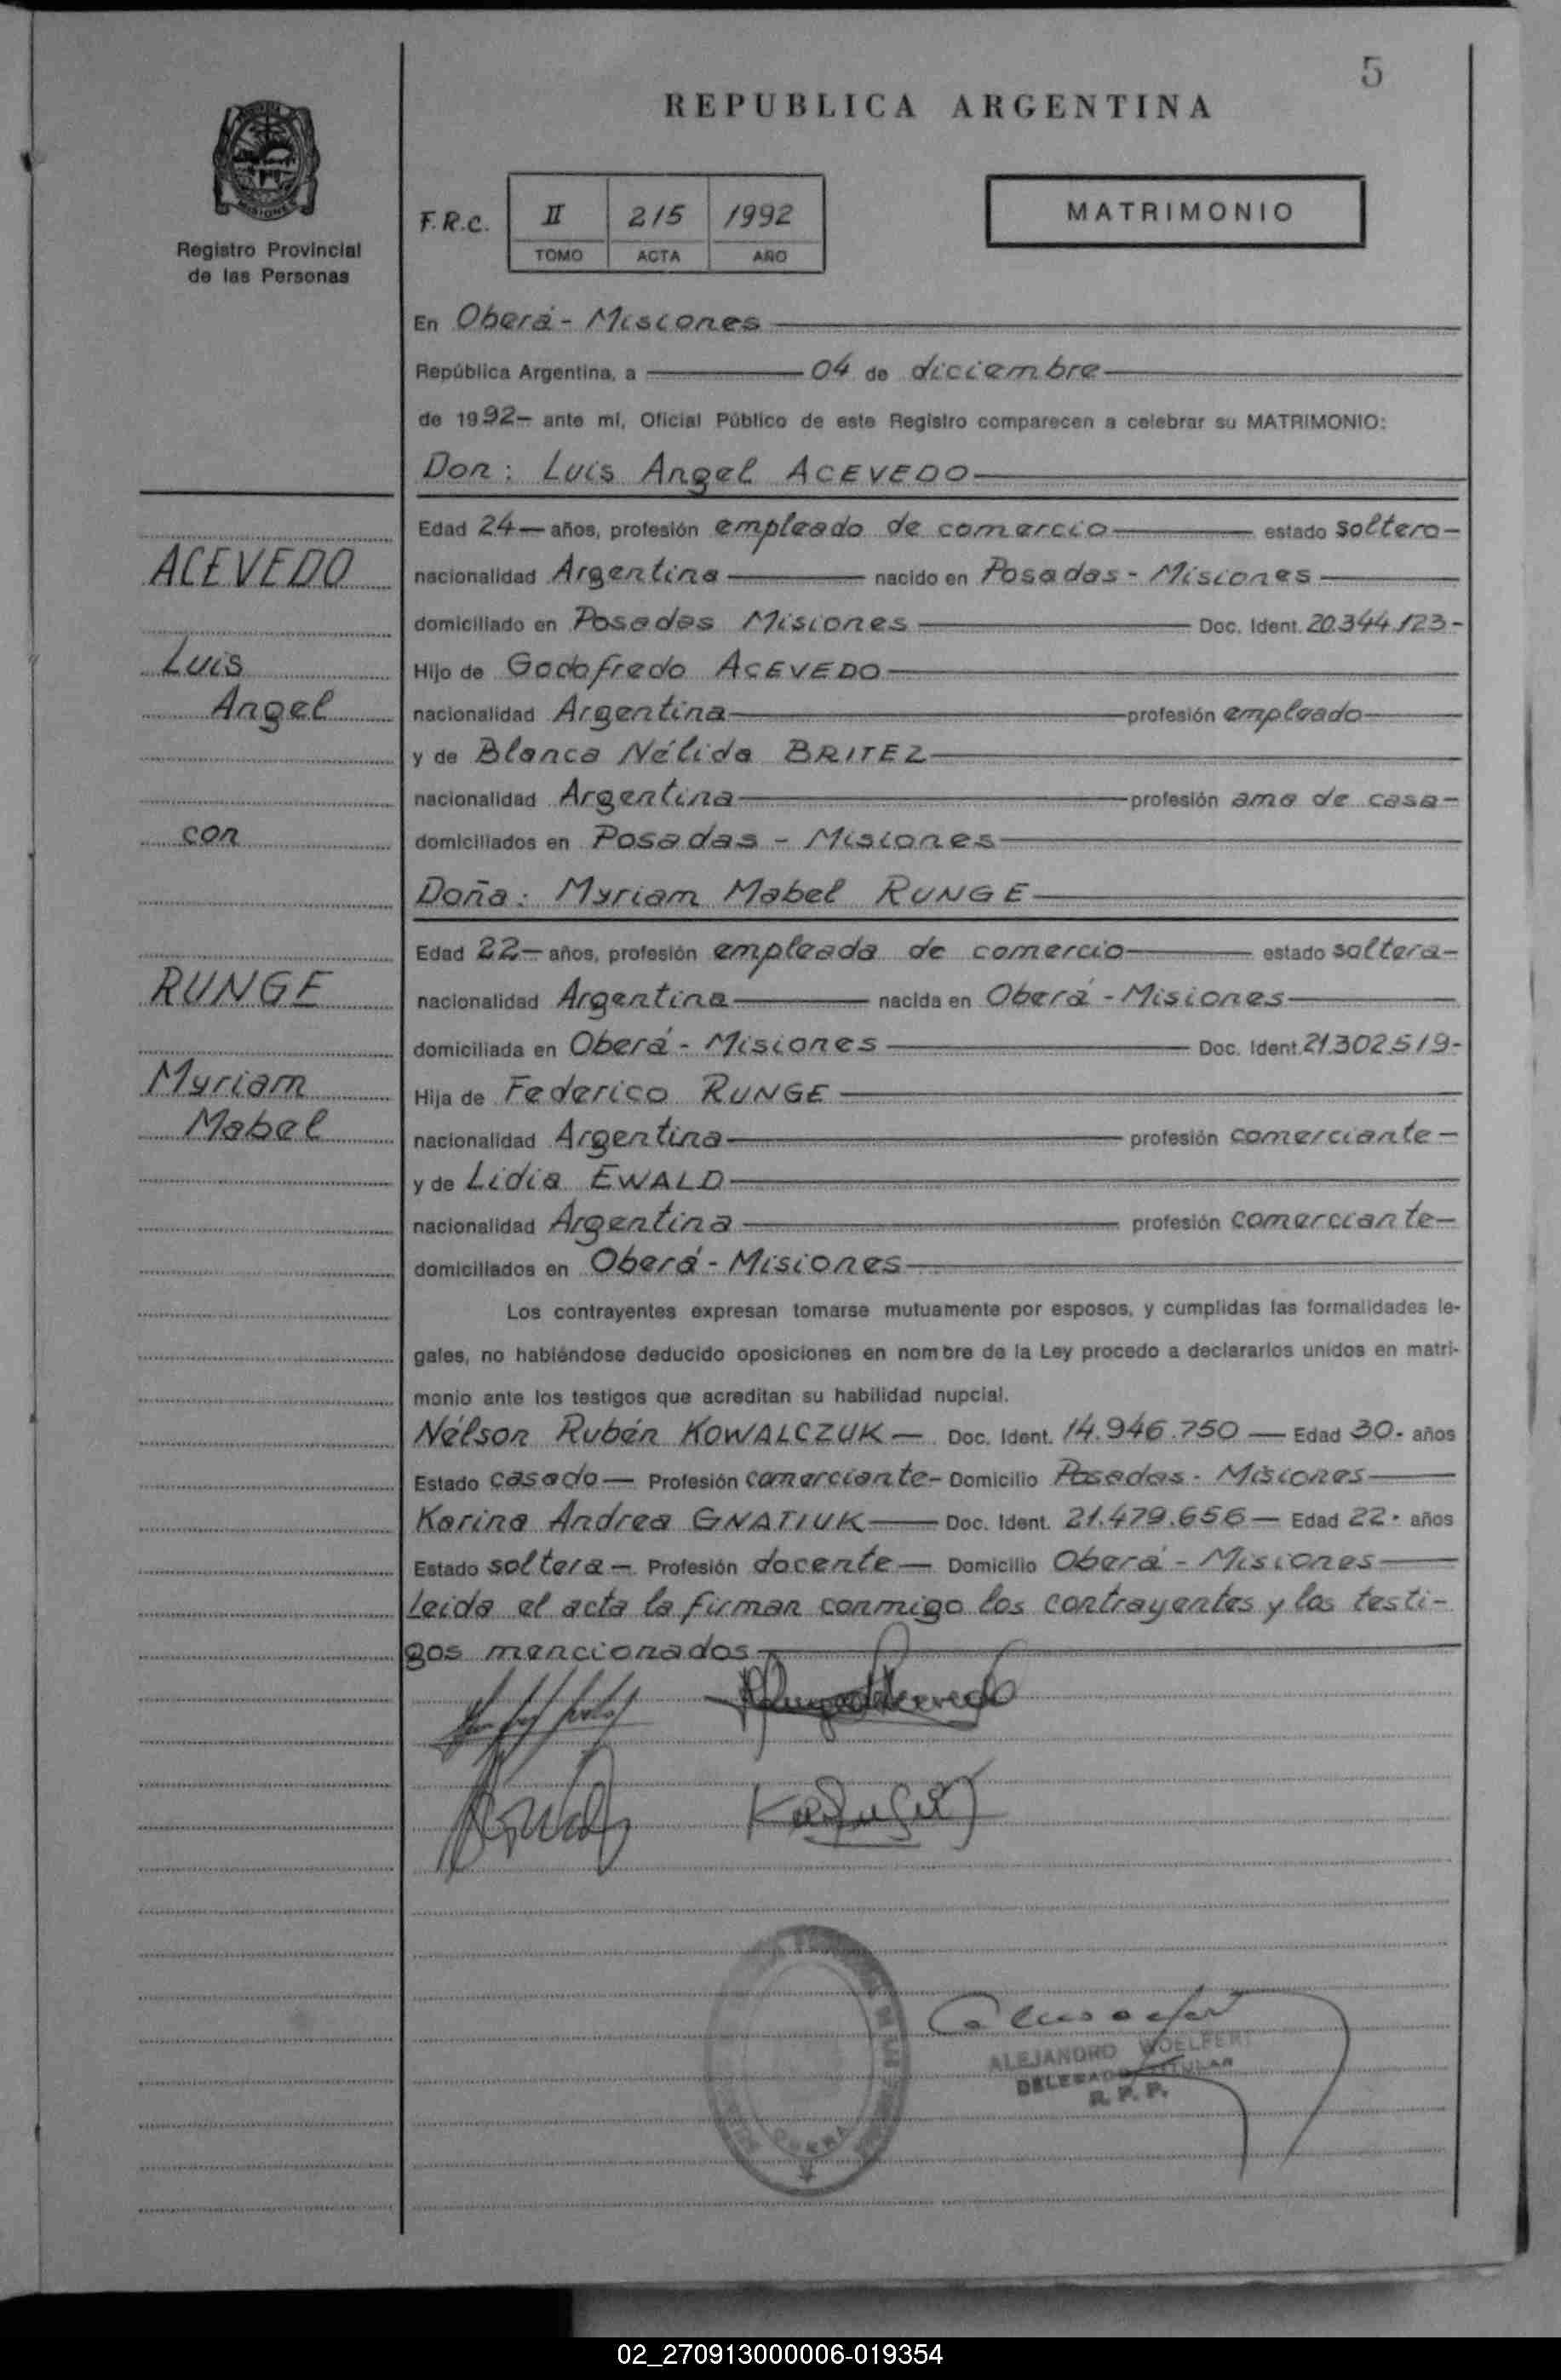 5
REPUBLICA ARGENTINA
MISIONES
Registro Provincial
de las Personas
F.R.C.
II 215 1992
TOMO ACTA AÑO
MATRIMONIO
En Oberá - Misiones
República Argentina, a 04 de diciembre
de 1992- ante mi, Oficial Público de este Registro comparecen a celebrar su MATRIMONIO:
Don: Luis Angel ACEVEDO
Edad 24- años, profesión empleado de comercio estado soltero-
ACEVEDO
nacionalidad Argentina nacido en Posadas - Misiones
domiciliado en Posadas Misiones Doc. Ident. 20.344.123-
Luis
Hijo de Godofredo ACEVEDO
Angel
nacionalidad Argentina profesión empleado
y de Blanca Nélida BRITEZ
nacionalidad Argentina profesión ama de casa-
con
domiciliados en Posadas - Misiones
Doña: Myriam Mabel RUNGE
Edad 22- años, profesión empleada de comercio estado soltera-
RUNGE
nacionalidad Argentina nacida en Oberá - Misiones
domiciliada en Oberá - Misiones Doc. Ident. 21.302.519-
Myriam
Hija de Federico RUNGE
Mabel
nacionalidad Argentina profesión comerciante-
y de Lidia EWALD
nacionalidad Argentina profesión comerciante-
domiciliados en Oberá - Misiones
Los contrayentes expresan tomarse mutuamente por esposos, y cumplidas las formalidades le-
gales, no habiéndose deducido oposiciones en nombre de la Ley procedo a declararlos unidos en matri-
monio ante los testigos que acreditan su habilidad nupcial.
Nélson Rubén KOWALCZUK- Doc. Ident. 14.946.750- Edad 30- años
Estado casado- Profesión comerciante- Domicilio Posadas - Misiones
Karina Andrea GNATIUK- Doc. Ident. 21.479.656- Edad 22- años
Estado soltera- Profesión docente- Domicilio Oberá - Misiones
Leida el acta la firman conmigo los contrayentes y los testi-
gos mencionados
OBERA
ALEJANDRO WOELFERT
DELEGADO TITULAR
R. P. P.
02_270913000006-019354